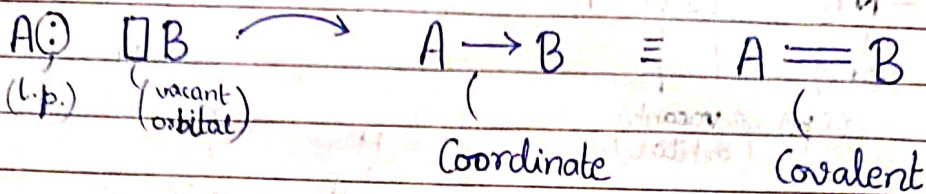 A: □B → A → B ≡ A = B
(l.p.) (vacant orbital)
Coordinate Covalent